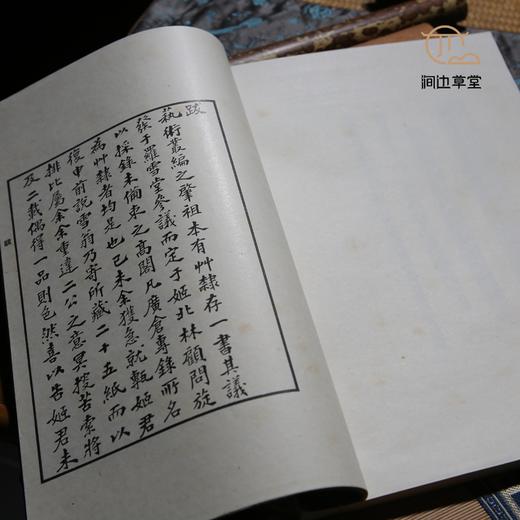 涧边草堂
跋
藝術叢編之肇祖本有艸隸存一書其議
發于羅雪堂參議而定于姬北林顧問旋
以採錄未備束之高閣凡廣倉專錄所名
為艸隸者均是也已未余獲急就甎姬君
復申前說雪翁乃寄所藏二十五紙而以
排比屬余余重違二公之意冥搜苦索將
及二載偶得一品則色然喜以告姬君未
跋